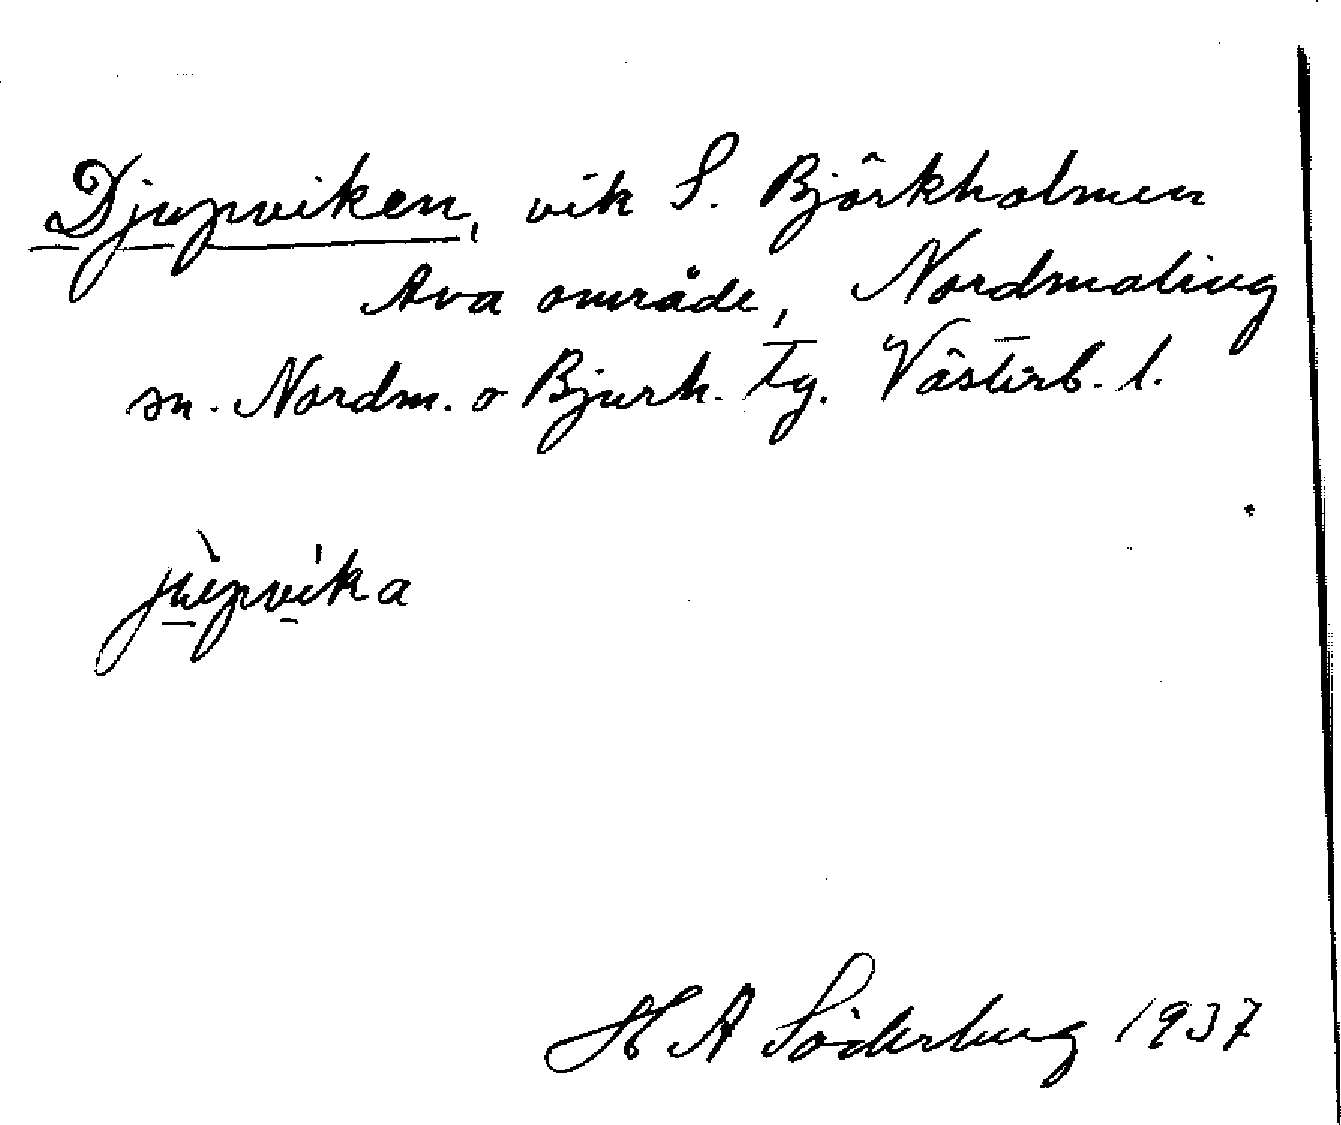 Djupviken, vik S. Björkholmen
Ava område, Nordmaling
sn. Nordm. o Bjurh. tg. Västerb. l.
jùpvíka
H A Söderberg 1937